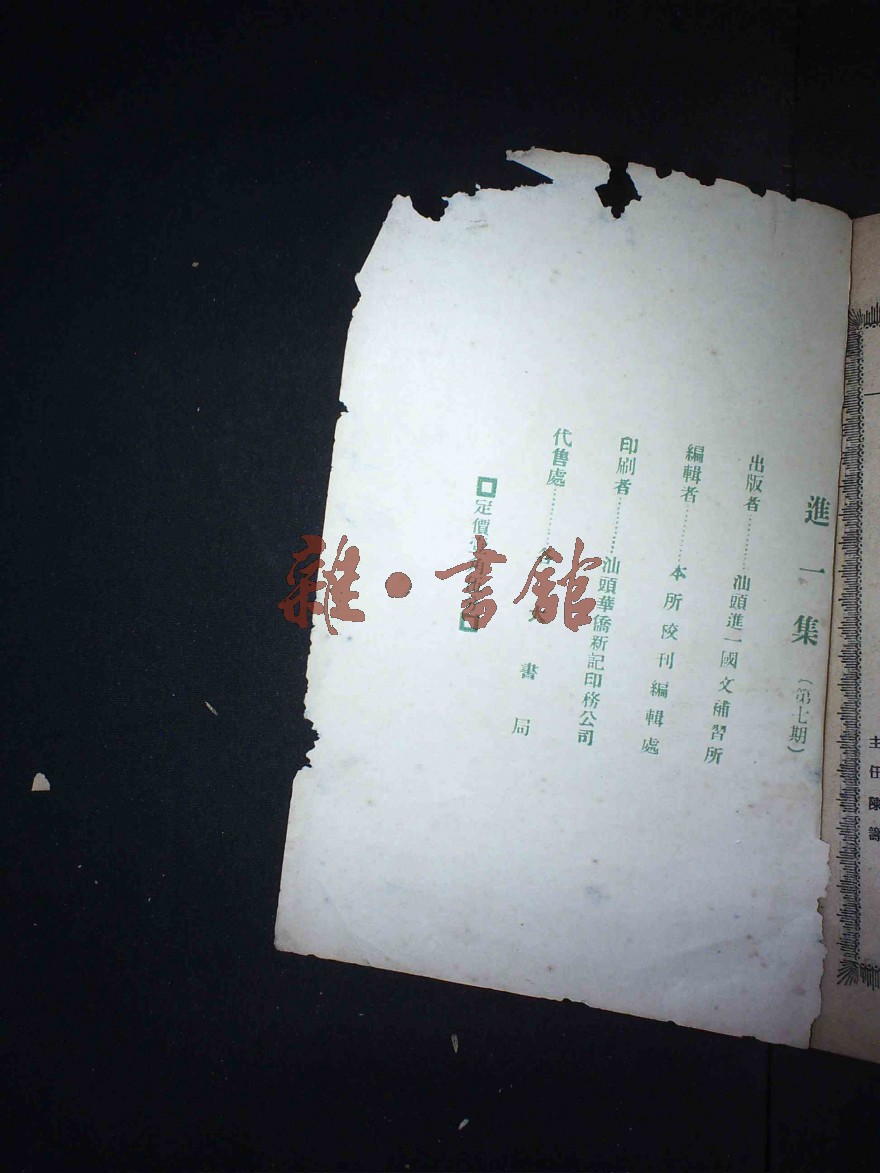 進一集(第七期)
出版者…………汕頭進一國文補習所
編輯者………本所校刊編輯處
印刷者…………汕頭華僑新記印務公司
代售處…………各大書局
定價
雜·書館
主任陳